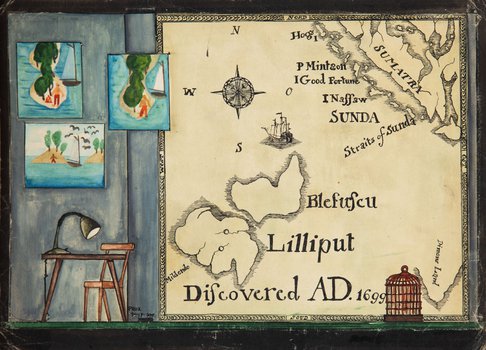 N
Hog I
SUMATRA
P Mintaon
I Good Fortune
I Naſſaw
SUNDA
Straits of Sunda
W
O
S
Blefuſcu
Lilliput
Mildendo
Diſcovered AD. 1699